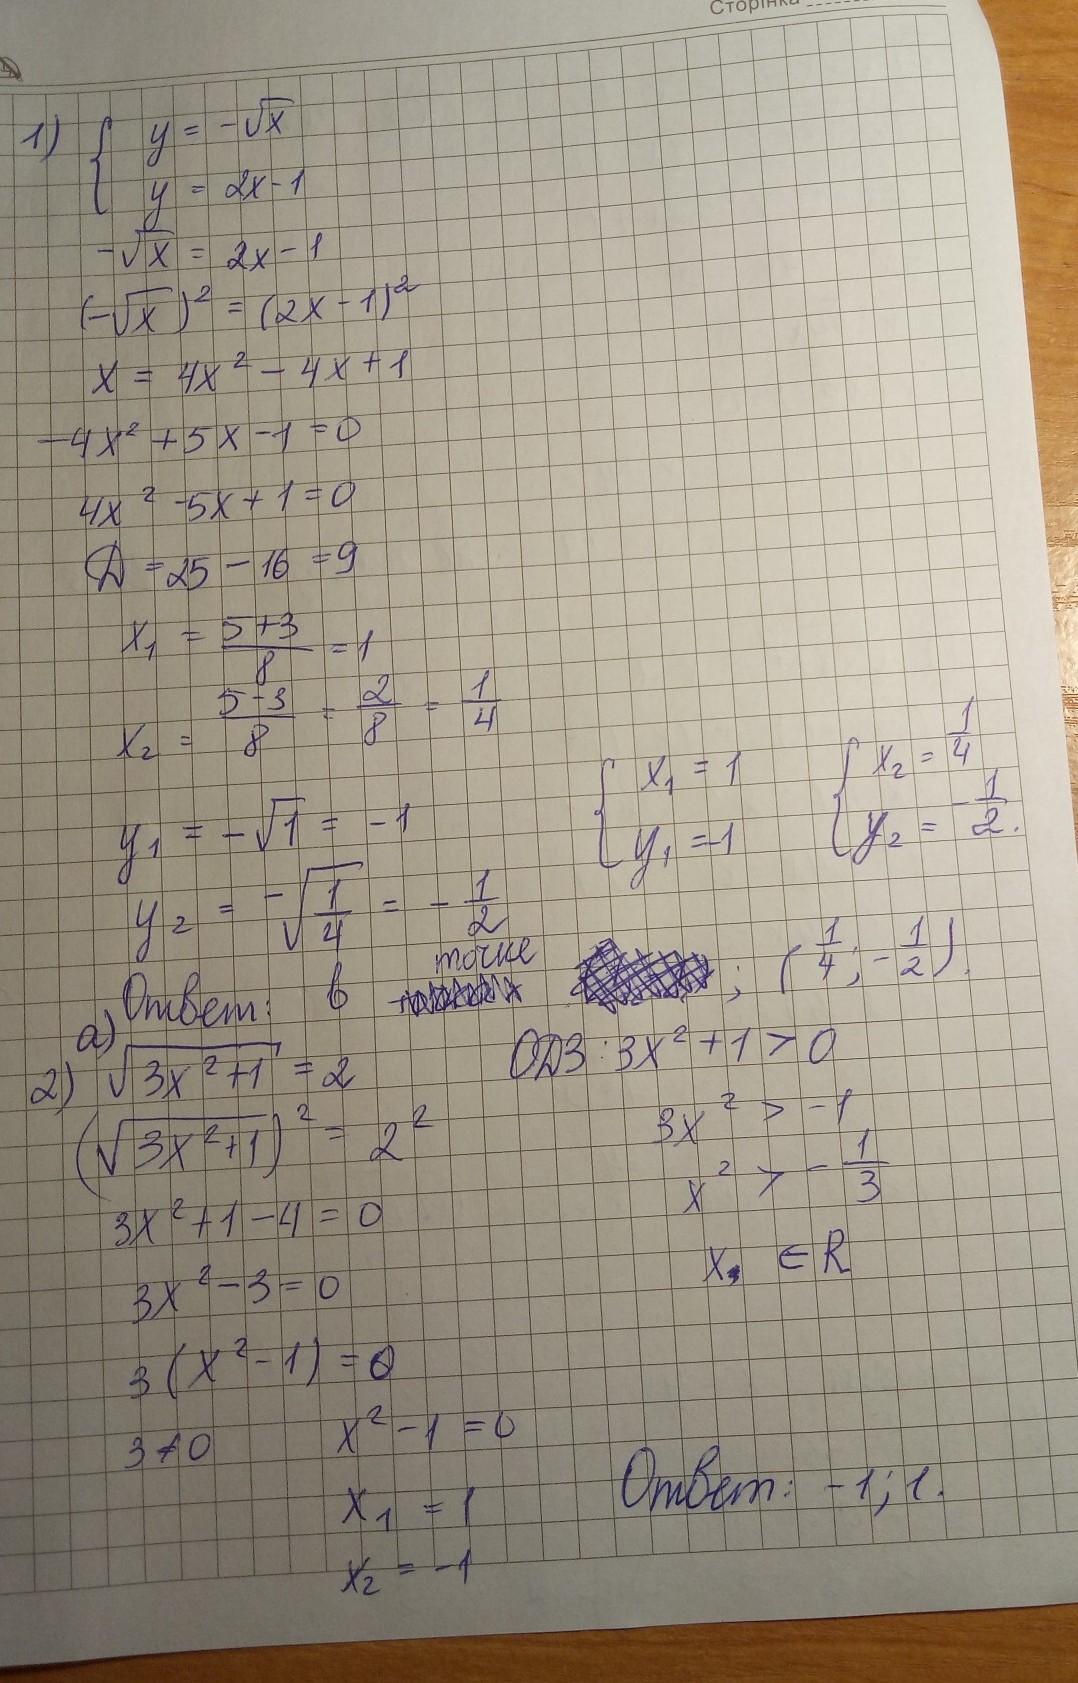 Сторінка
1) { y = -√x
y = 2x-1
-√x = 2x-1
(-√x)² = (2x-1)²
x = 4x² - 4x+1
-4x² +5x -1 =0
4x² -5x+1=0
D =25-16 =9
x₁ = (5+3)/8 =1
x₂ = (5-3)/8 = 2/8 = 1/4
y₁ = -√1 = -1
{ x₁ = 1
y₁ =-1
{ x₂ = 1/4
y₂ = -1/2.
y₂ = -√(1/4) = -1/2
Ответ: в точке ; (1/4; -1/2).
2) а) √(3x²+1) =2
(√(3x²+1))² = 2²
3x²+1-4=0
3x²-3=0
3(x²-1)=0
3≠0 x²-1=0
x₁ = 1
x₂ = -1
ОДЗ: 3x²+1>0
3x² > -1
x² > -1/3
x ∈ R
Ответ: -1; 1.